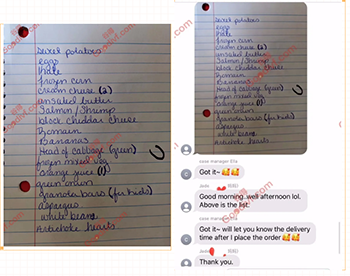 sweet potatoes
eggs
kale
frozen corn
cream cheese (2)
unsalted butter
Salmon/Shrimp
block cheddar cheese
Romain
Bananas
Head of cabbage (green)
frozen mixed veg
orange juice (1)
green onion
Granola bars (for kids)
asparagus
white beans
Artichoke hearts
sweet potatoes
eggs
kale
frozen corn
cream cheese (2)
unsalted butter
Salmon/Shrimp
block cheddar cheese
Romain
Bananas
Head of cabbage (green)
frozen mixed veg
orange juice (1)
green onion
Granola bars (for kids)
asparagus
white beans
Artichoke hearts
case manager Ella
Got it~ 🥰🥰
Good morning..well afternoon lol.
Above is the list.
case manager Ella
Got it~ will let you know the delivery
time after I place the order 🥰🥰
Thank you.